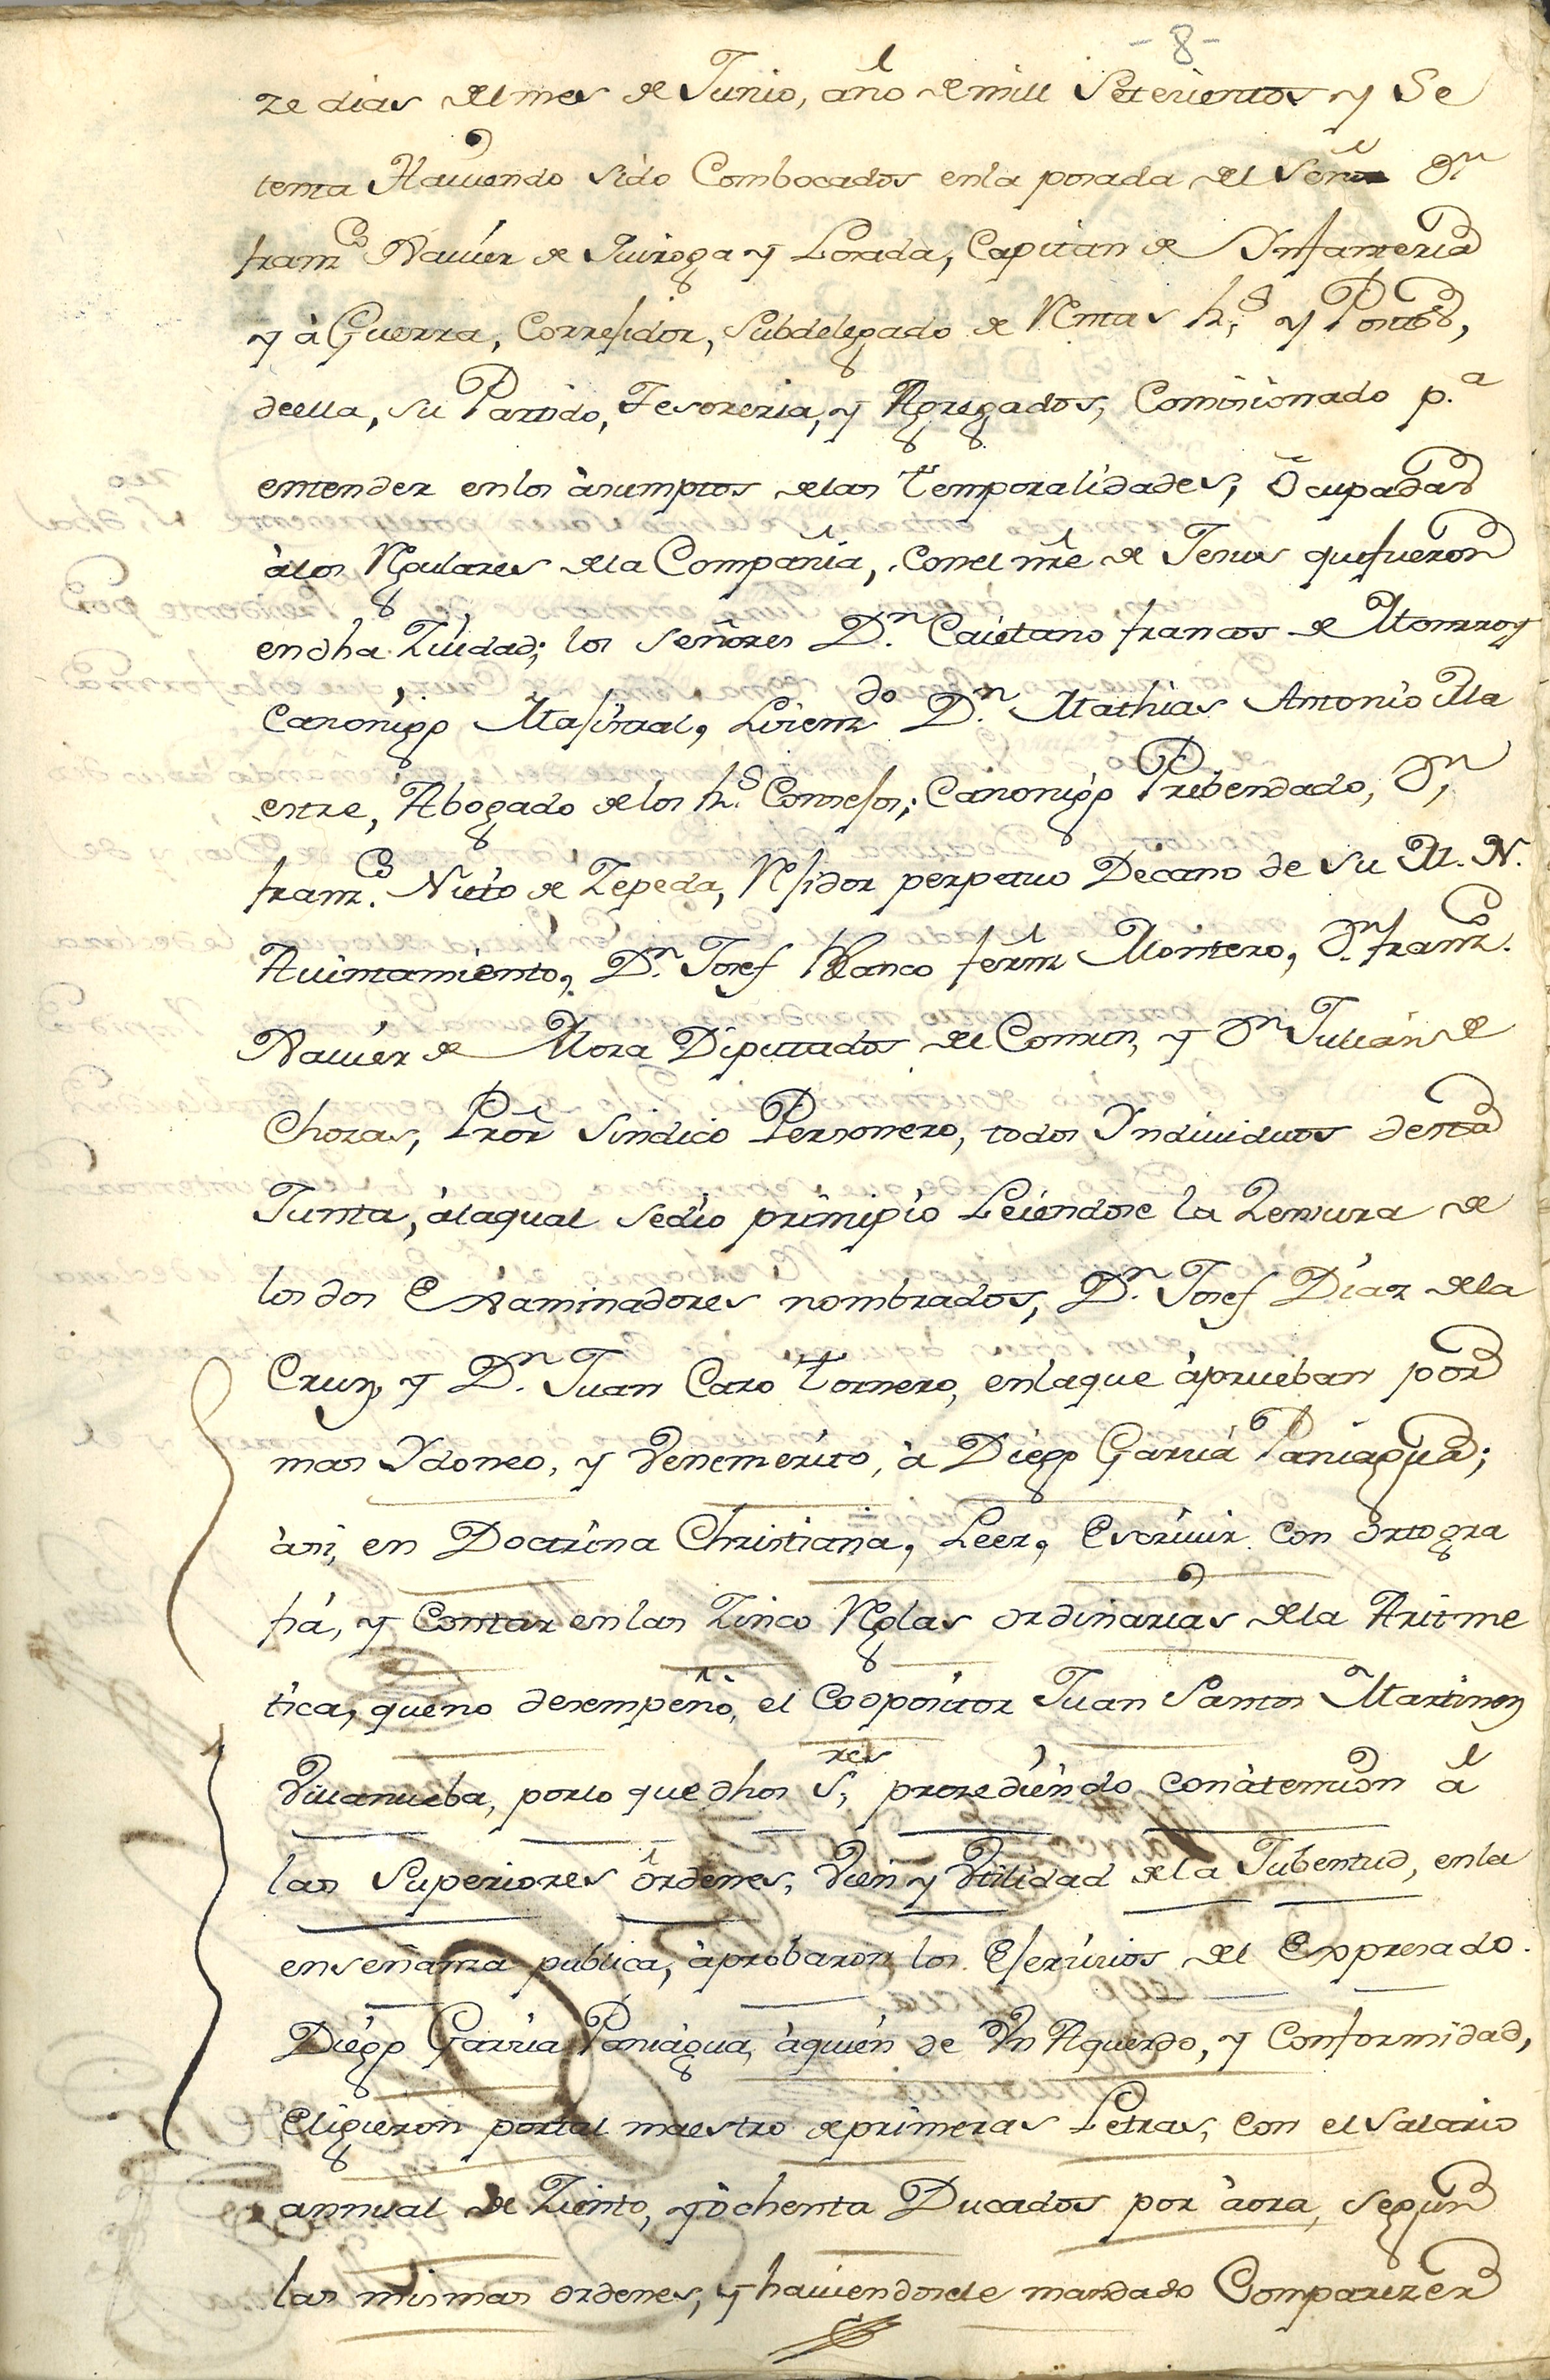 -8-
ze dias del mes de Junio, año de mill Setecientos y Se
tenta Haviendo sido Combocados en la posada del Señor Dn
franco Xavier de Quiroga y Losada, Capitan de Ynfanteria
y à Guerra, Corregidor, Subdelegado de Rentas Rs. y Positos,
de ella, su Partido, Tesoreria, y Agregados, Comisionado p.a
entender en los àsumptos de las temporalidades, ocupadas
à los Regulares de la Compañia, con el nre de Jesus que fueron
en dha Ziudad; los Señores Dn. Caietano francos de Monrroy
Canonigo Magistral, Lizendo Dn. Mathias Antonio Ma
entre, Abogado de los Rs. Consejos; Canonigo Prebendado, Dn
franco. Nieto de Zepeda, Regidor perpetuo Decano de su M. N.
Auintamiento, Dn. Josef Blanco fernz Montero, Dn. franco.
Xavier de Mora Diputados del Comun, y Dn Julian de
Chozas, Pror Sindico Personero, todos Yndividuos desta
Junta, à la qual se dio prinzipio Leiendose la Zensura de
los dos Examinadores nombrados, Dn. Josef Diaz de la
Cruz, y Dn. Juan Caro tornero, en la que àprueban por
mas Ydoneo, y Venemerito, à Diego Garzia Paniagua;
àsi, en Doctrina Christiana, Leer, Escrivir con òrtogra
fia, y Contar en las Zinco Reglas ordinarias de la Aritme
tica, que no desempeñò, el Coopositor Juan Santos Martinez
Villanueba, por lo que dhos Sres, prozediendo con àtenzion à
las Superiores òrdenes, Vien y Vtilidad de la Jubentud, en la
enseñanza publica, àprobaron los Ejerzizios del Expresado.
Diego Garzia Paniàgua, àquien de Vn Aquerdo, y Conformidad,
Eligieron por tal maestro de primeras Letras, con el salario
annual de Ziento, y òchenta Ducados por àora, segun
las mismas ordenes, y haviendosele mandado Comparezer